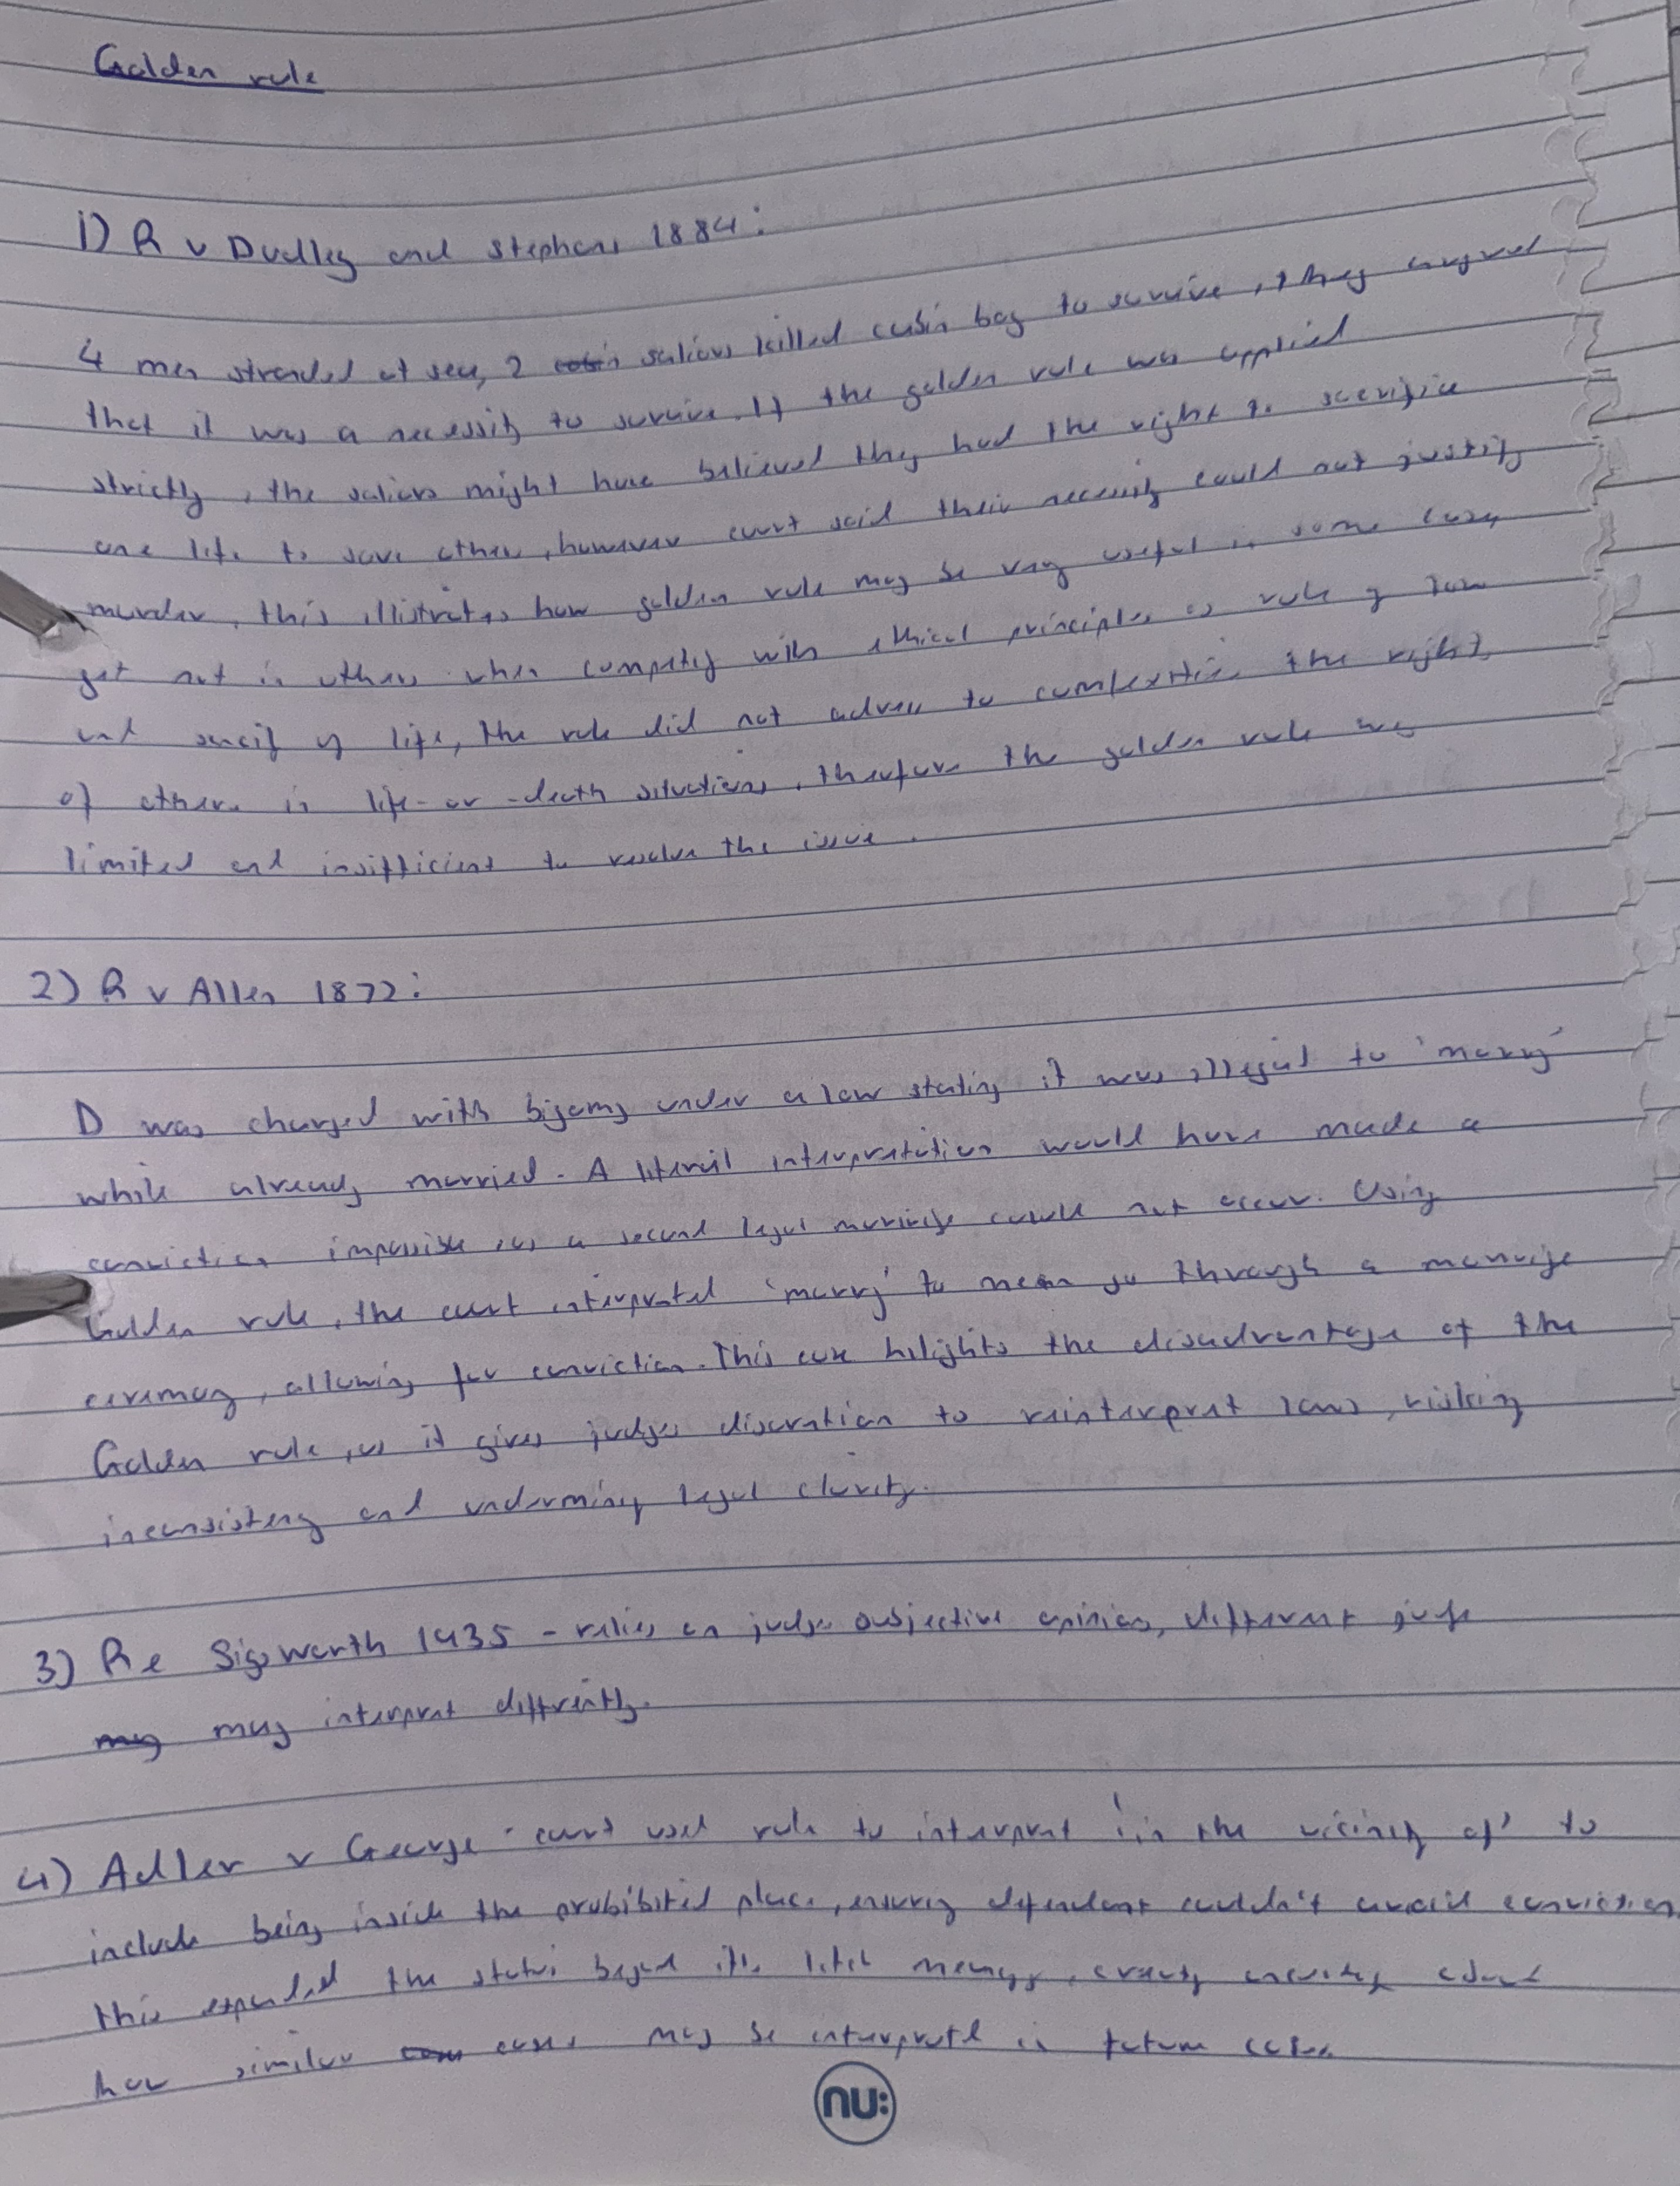 Golden rule
1) R v Dudley and Stephens 1884:
4 men stranded at sea, 2 sailors killed cabin boy to survive, they argued
that it was a necessity to survive. If the golden rule was applied
strictly, the sailors might have believed they had the right to sacrifice
one life to save others, however court said their necessity could not justify
murder, this illistrates how golden rule may be very useful in some cases
yet not in others when competing with ethical principles as rule of law
and sancity of life, the rule did not adress to complexities the rights
of others in life-or-death situations, therefore the golden rule was
limited and insifficient to resolve the issue.
2) R v Allen 1872:
D was charged with bigamy under a law stating it was illegal to 'marry'
while already married. A literal interpretation would have made a
conviction impossible as a second legal marriage could not occur. Using
Golden rule, the court interpreted 'marry' to mean go through a marriage
ceremony, allowing for conviction. This case hilights the disadvantage of the
Golden rule, as it gives judges discretion to reinterpret laws, risking
inconsisteny and undermining legal clarity.
3) Re Sigsworth 1935 - relies on judges subjective opinion, different judge
may may interpret differently.
4) Adler v George - court used rule to interpret 'in the vicinity of' to
include being inside the prohibited place, ensuring defendant couldn't avoid conviction
this expanded the beyond its, about
how similar cases may be interpreted in future cases
nu: